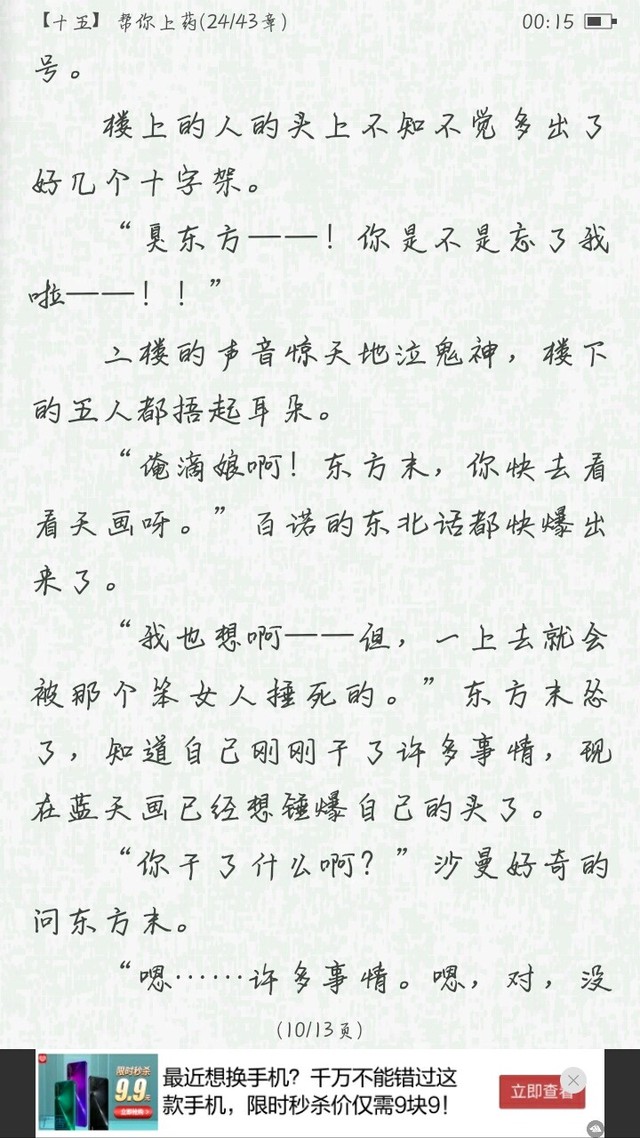 【十五】 帮你上药(24/43章) 00:15
号。
楼上的人的头上不知不觉多出了
好几个十字架。
“臭东方——！你是不是忘了我
啦——！！”
二楼的声音惊天地泣鬼神，楼下
的五人都捂起耳朵。
“俺滴娘啊！东方末，你快去看
看天画呀。”百诺的东北话都快爆出
来了。
“我也想啊——但，一上去就会
被那个笨女人捶死的。”东方末怂
了，知道自己刚刚干了许多事情，现
在蓝天画已经想锤爆自己的头了。
“你干了什么啊？”沙曼好奇的
问东方末。
“嗯……许多事情。嗯，对，没
(10/13页)
限时秒杀
9.9
最近想换手机？千万不能错过这
款手机，限时秒杀价仅需9块9！
立即查看